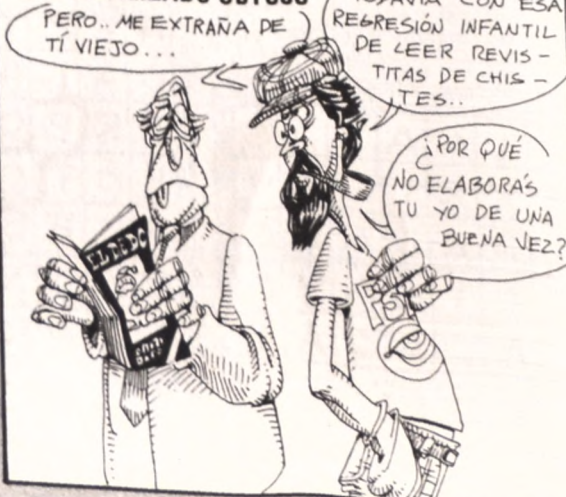 PERO.. ME EXTRAÑA DE
TÍ VIEJO...
CON ESA
REGRESIÓN INFANTIL
DE LEER REVIS-
TITAS DE CHIS-
TES..
¿POR QUÉ
NO ELABORÁS
TU YO DE UNA
BUENA VEZ?
EL DEDO